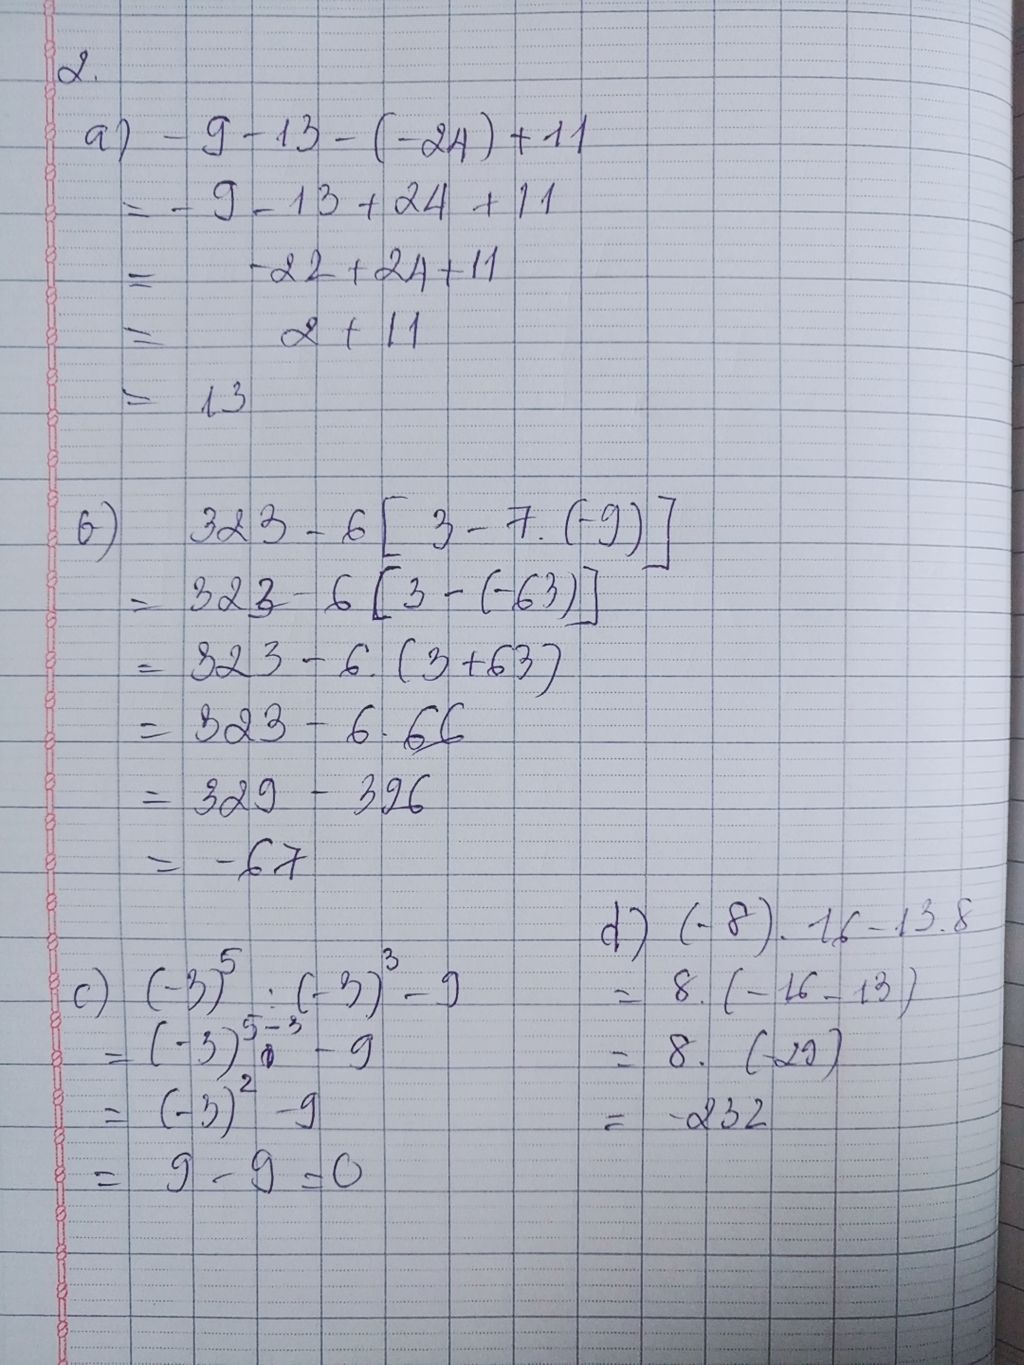 2.
a) - 9 - 13 - (-24) + 11
= - 9 - 13 + 24 + 11
= -22 + 24 + 11
= 2 + 11
= 13
b) 323 - 6 [ 3 - 7. (-9) ]
= 323 - 6 [ 3 - (-63) ]
= 323 - 6. (3 + 63)
= 323 - 6. 66
= 329 - 396
= -67
c) (-3)⁵ : (-3)³ - 9
= (-3)⁵⁻³ - 9
= (-3)² - 9
= 9 - 9 = 0
d) (-8). 16 - 13.8
= 8. (-16 - 13)
= 8. (-29)
= -232